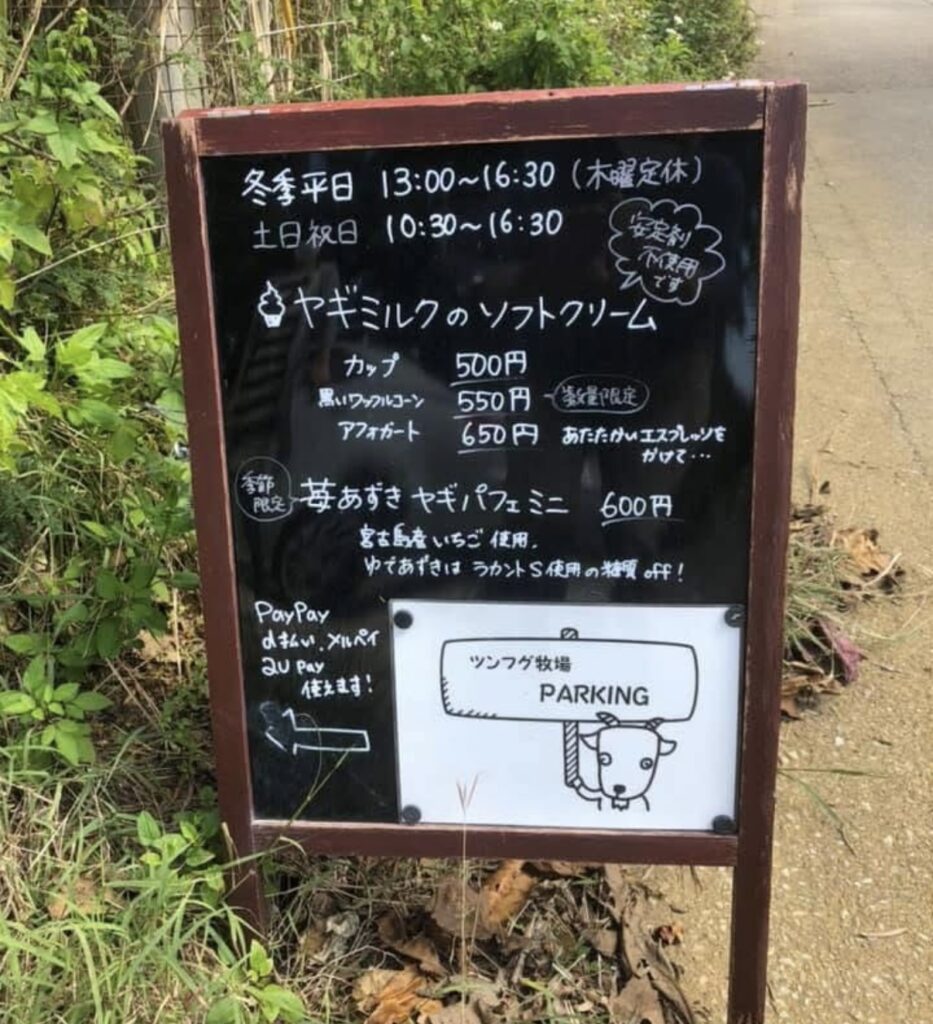 冬季平日 13:00～16:30 (木曜定休)
土日祝日 10:30～16:30
安定剤
不使用
です
ヤギミルクの ソフトクリーム
カップ 500円
黒いワッフルコーン 550円 数量限定
アフォガート 650円 あたたかいエスプレッソを
かけて…
季節
限定
苺あずき ヤギパフェミニ 600円
宮古島産いちご使用.
ゆであずきは ラカントS使用の糖質off!
PayPay
d払い.メルペイ
au pay
使えます!
ツンフグ牧場
PARKING